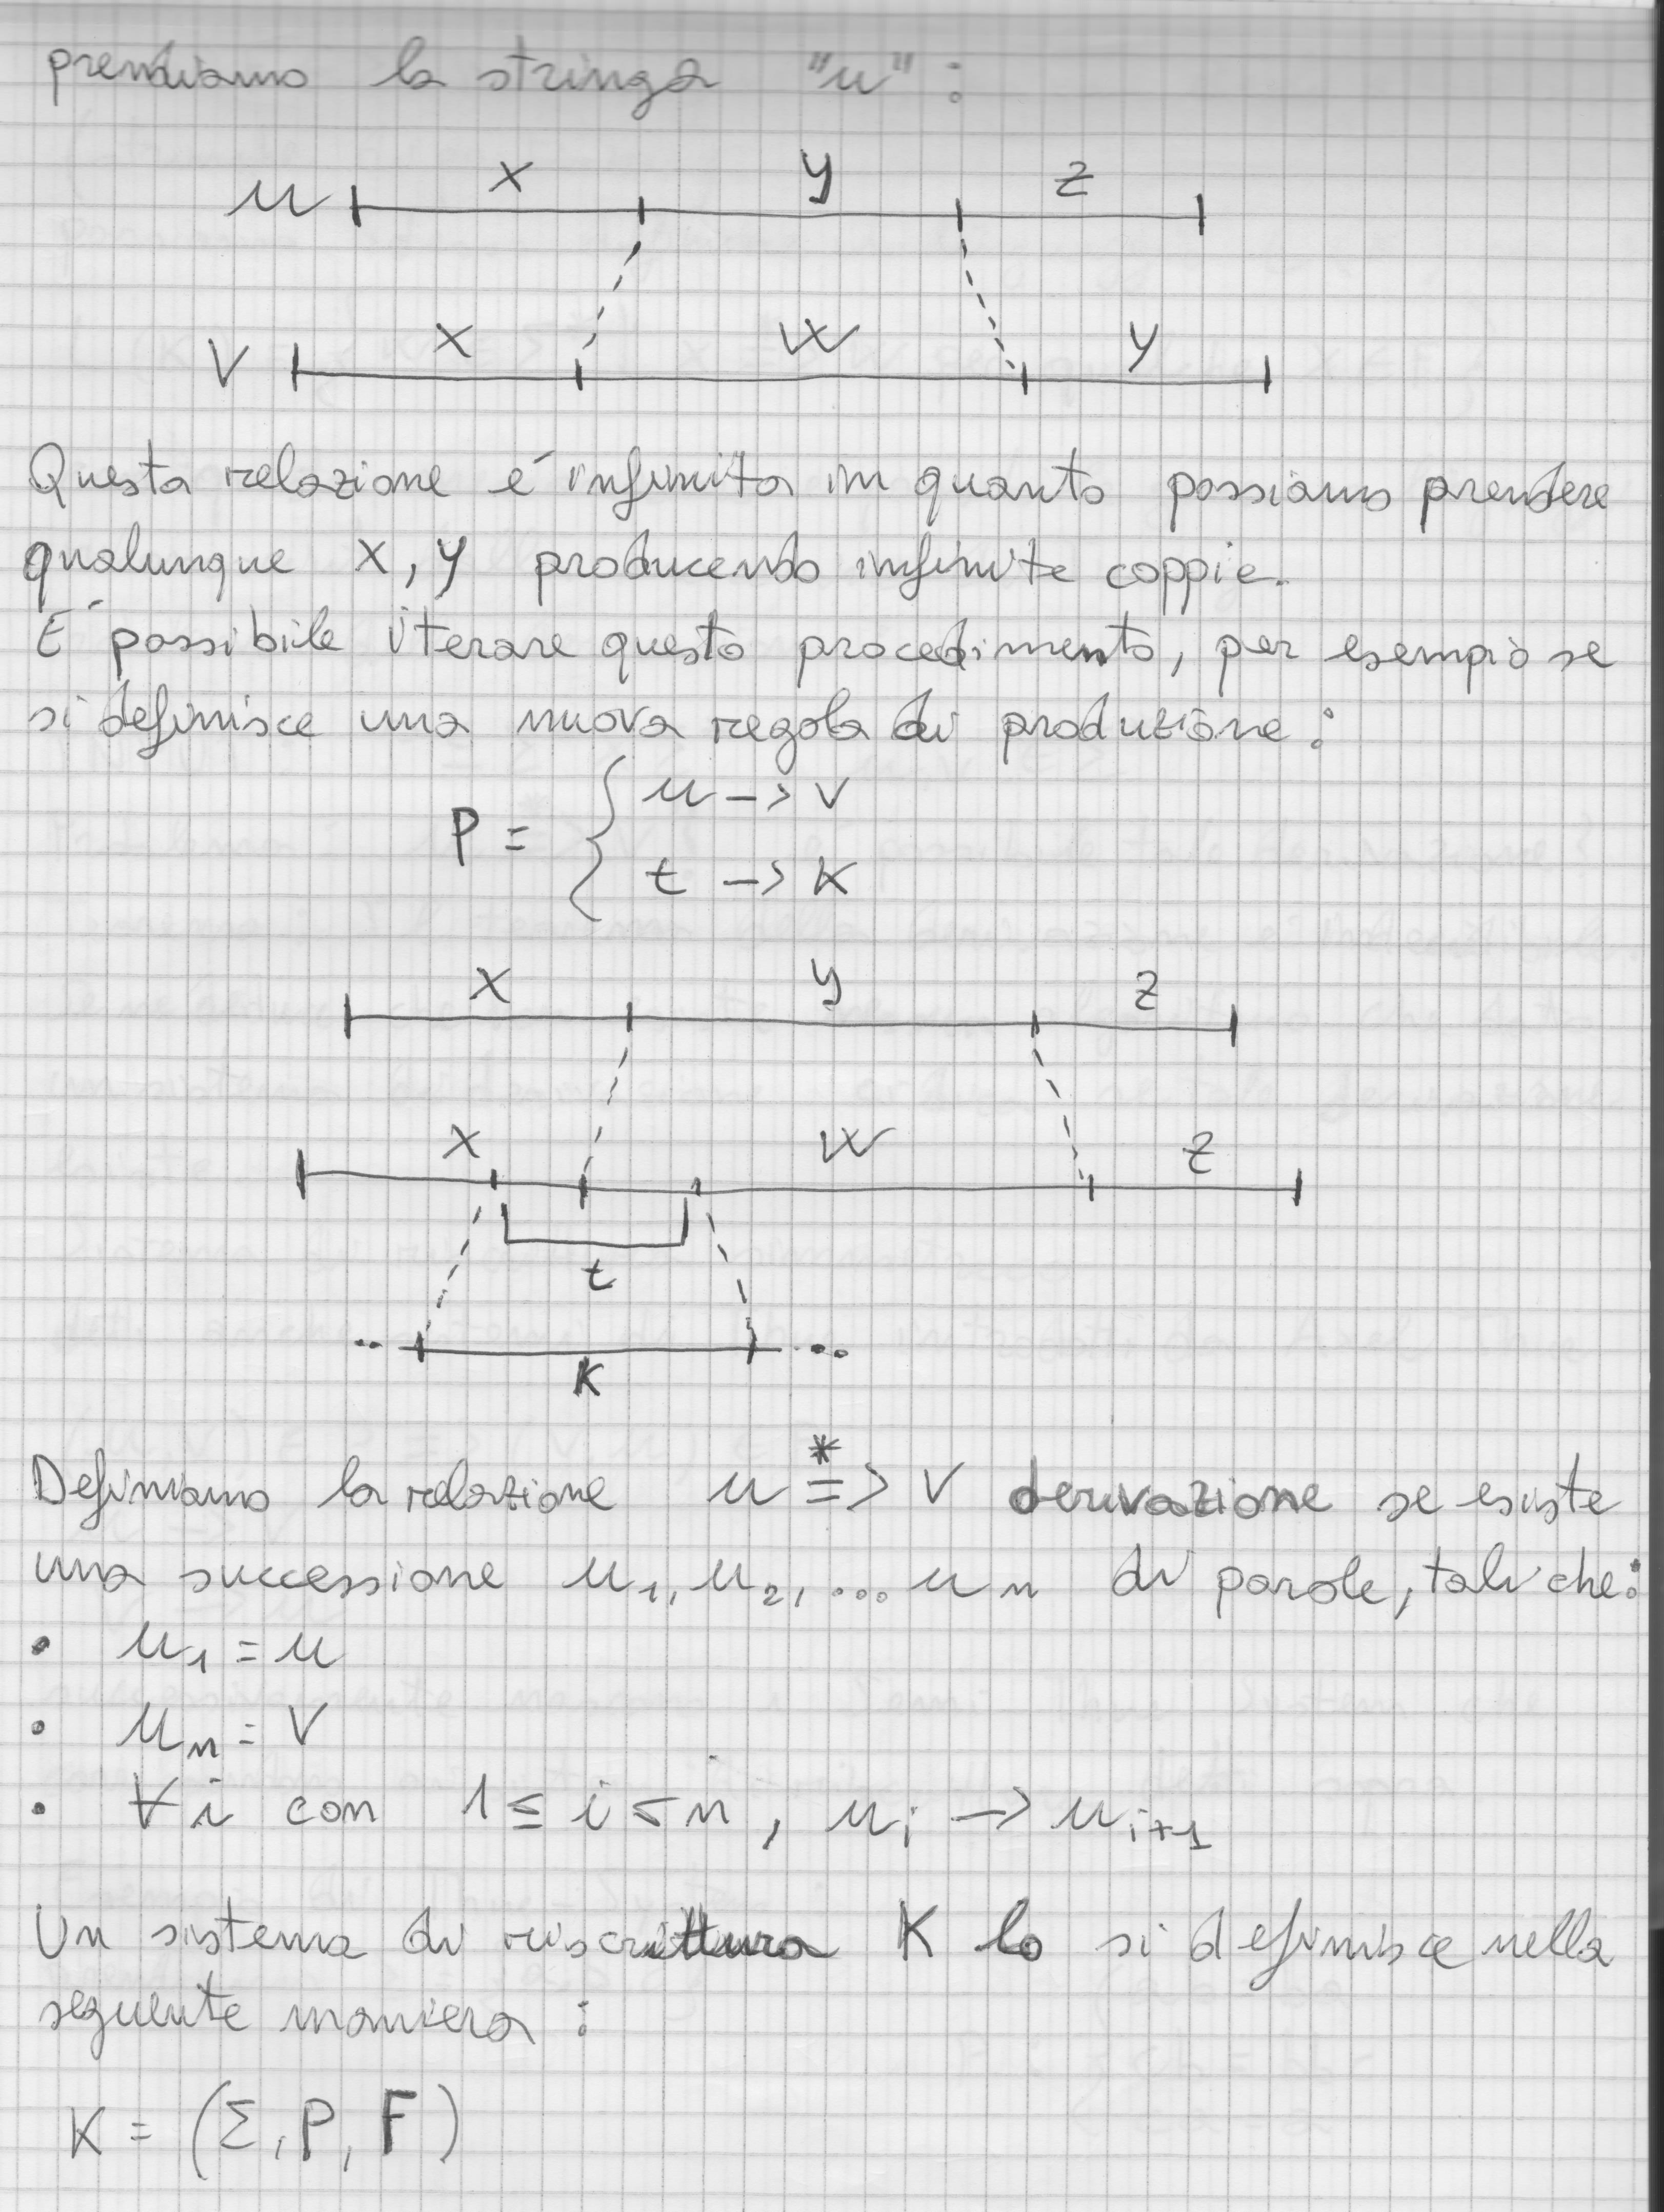 prendiamo la stringa "u" :
x y z
u
x w y
V
Questa relazione é infinita in quanto possiamo prendere
qualunque x, y producendo infinite coppie.
É possibile iterare questo procedimento, per esempio se
si definisce una nuova regola di produzione:
P = { u -> v
t -> k
x y z
x w z
t
.. K ...
Definiamo la relazione u *=> v derivazione se esiste
una successione u1, u2, ... un di parole, tali che:
• u1 = u
• un = v
• ∀i con 1 ≤ i ≤ n, ui -> ui+1
Un sistema di riscrittura K lo si definisce nella
seguente maniera :
K = (Σ, P, F)